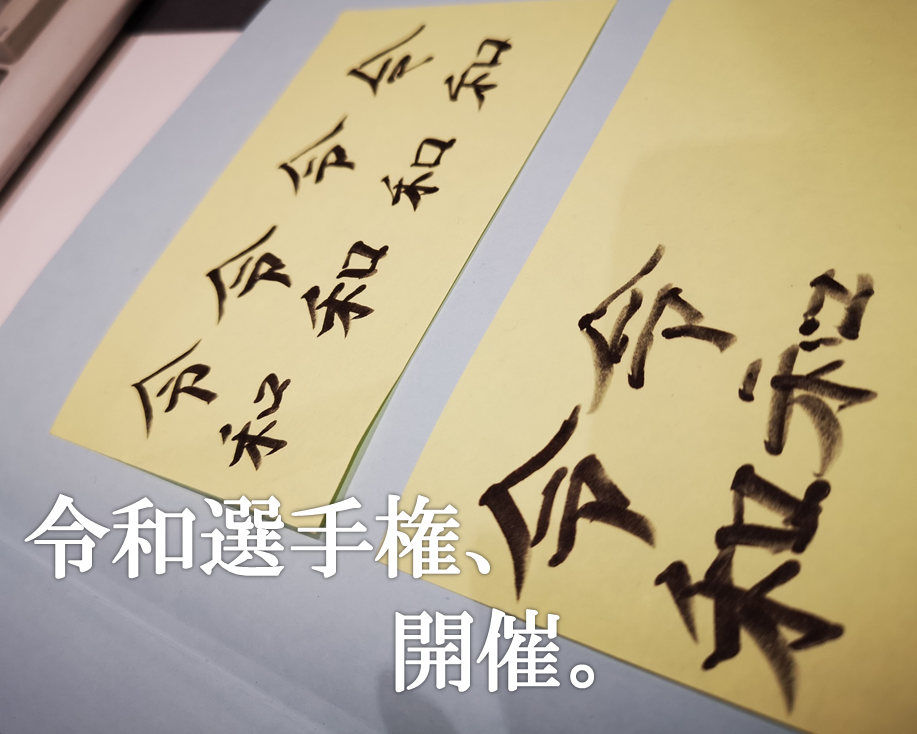 令和
令和
令和
令和
令和
令和
令和選手権、
開催。